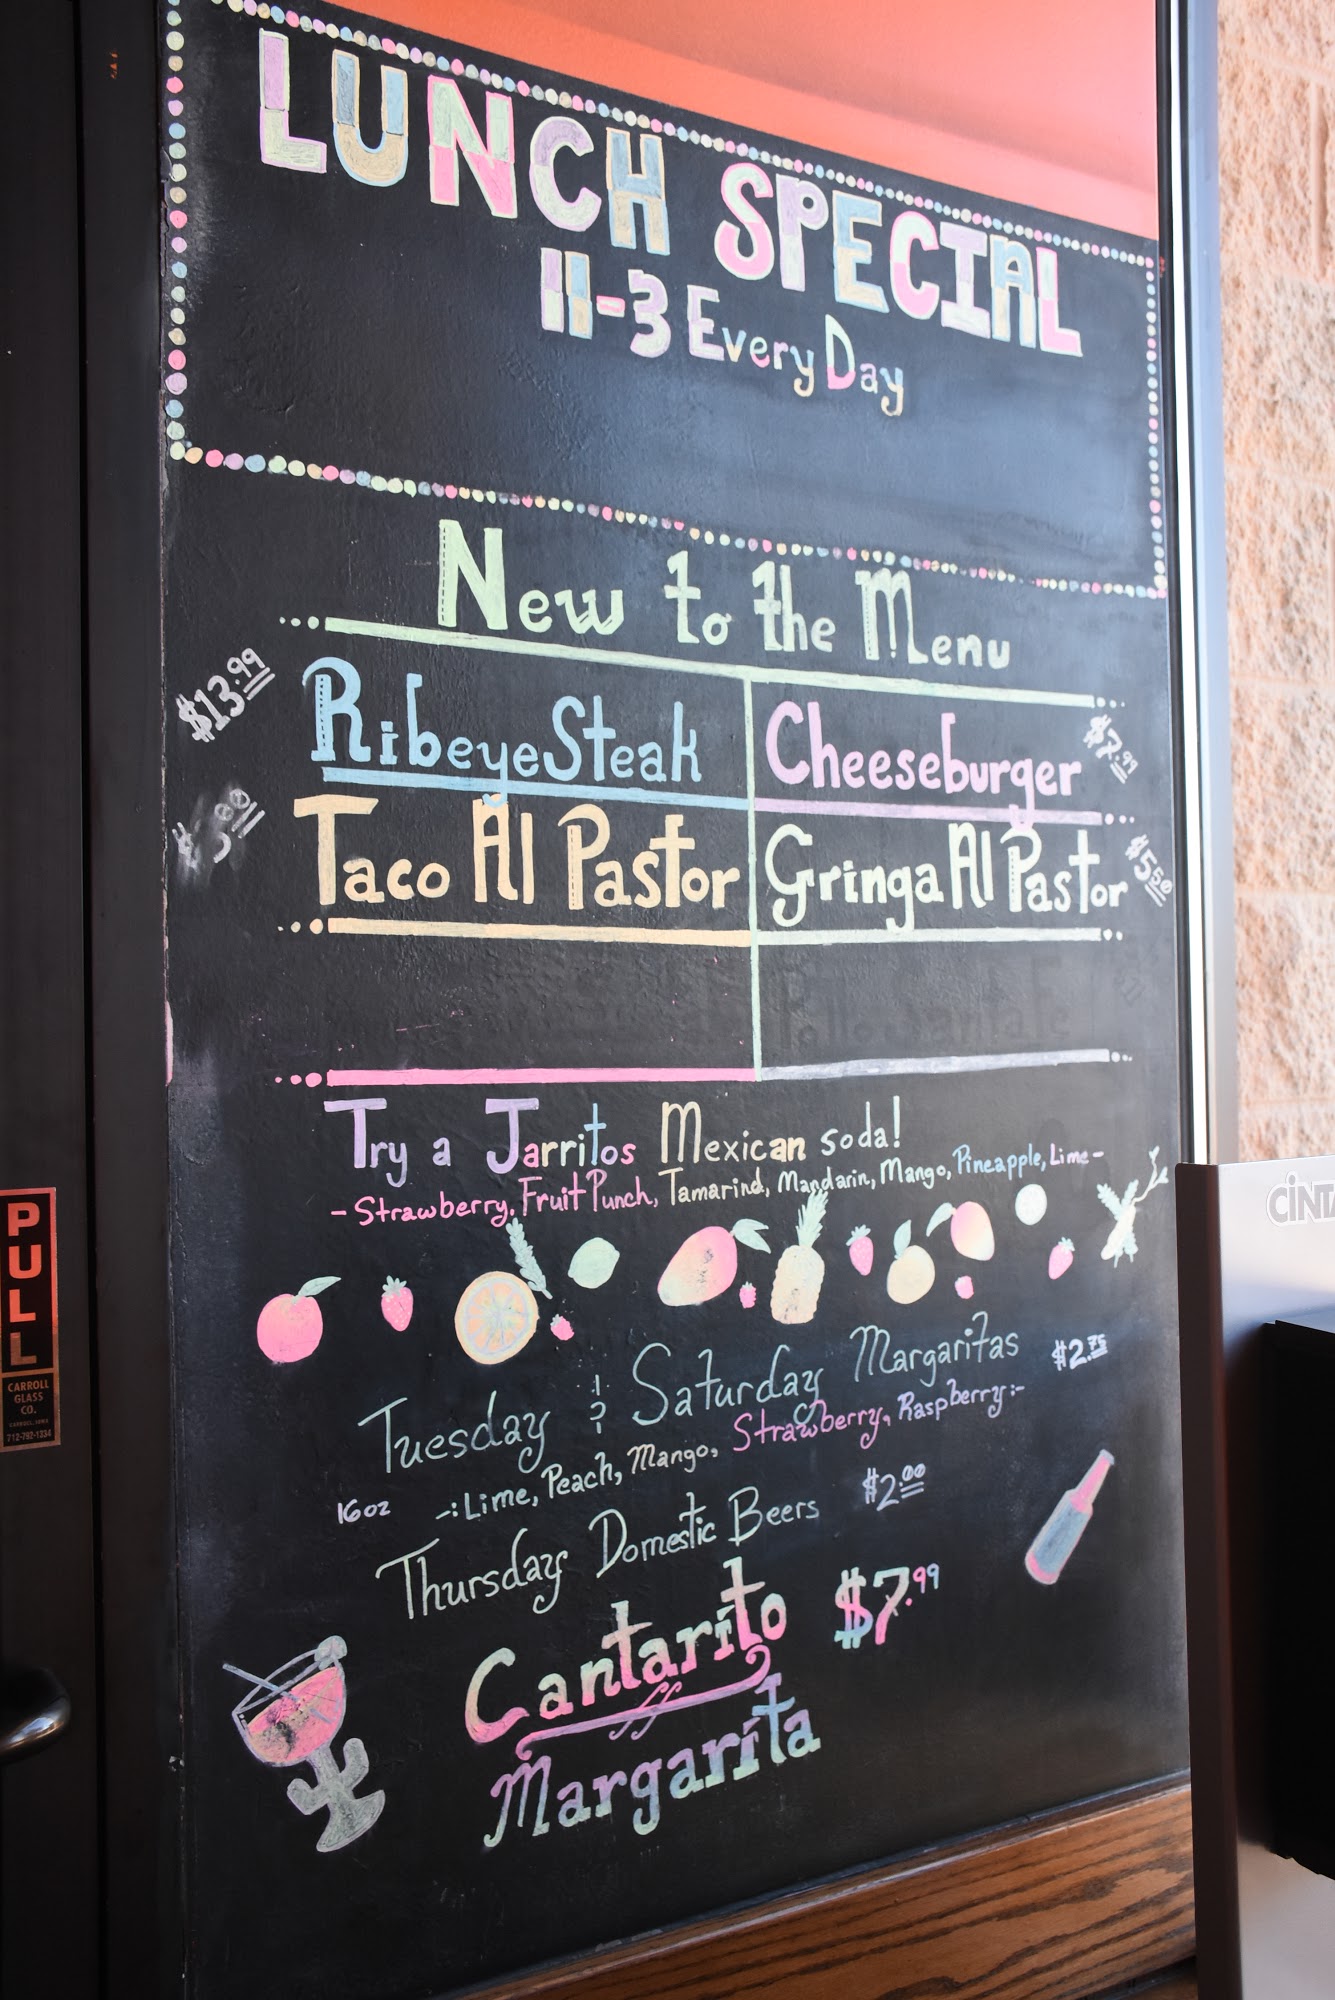 LUNCH SPECIAL
11-3 Every Day
New to the Menu
$13.99 Ribeye Steak
Cheeseburger $7.99
Taco Al Pastor
Gringa Al Pastor $5.50
Try a Jarritos Mexican soda!
- Strawberry, Fruit Punch, Tamarind, Mandarin, Mango, Pineapple, Lime -
Tuesday & Saturday Margaritas $2.75
16oz -:Lime, Peach, Mango, Strawberry, Raspberry:-
Thursday Domestic Beers $2.00
Cantarito $7.99
Margarita
PULL
CARROLL
GLASS
CO.
CARROLL, IOWA
712-792-1334
CINTA